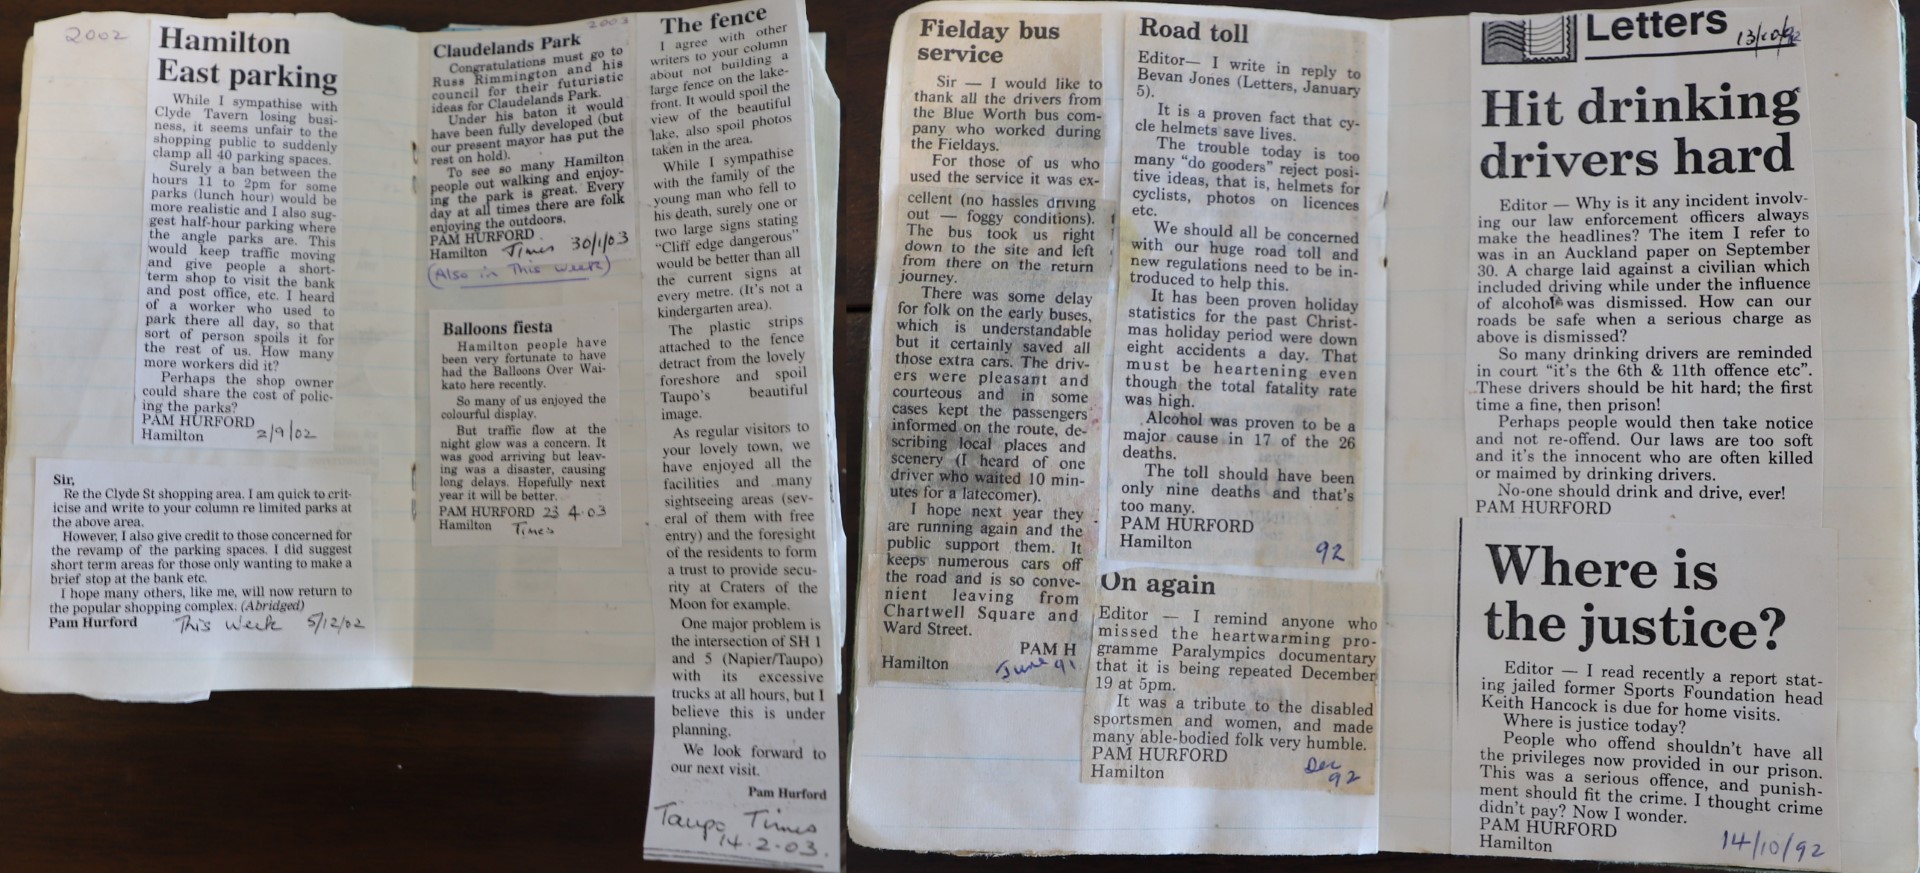 2002
Hamilton
East parking
While I sympathise with
Clyde Tavern losing busi-
ness, it seems unfair to the
shopping public to suddenly
clamp all 40 parking spaces.
Surely a ban between the
hours 11 to 2pm for some
parks (lunch hour) would be
more realistic and I also sug-
gest half-hour parking where
the angle parks are. This
would keep traffic moving
and give people a short-
term shop to visit the bank
and post office, etc. I heard
of a worker who used to
park there all day, so that
sort of person spoils it for
the rest of us. How many
more workers did it?
Perhaps the shop owner
could share the cost of polic-
ing the parks?
PAM HURFORD
Hamilton 2/9/02
Sir,
Re the Clyde St shopping area. I am quick to crit-
icise and write to your column re limited parks at
the above area.
However, I also give credit to those concerned for
the revamp of the parking spaces. I did suggest
short term areas for those only wanting to make a
brief stop at the bank etc.
I hope many others, like me, will now return to
the popular shopping complex. (Abridged)
Pam Hurford This Week 5/12/02
2003
Claudelands Park
Congratulations must go to
Russ Rimmington and his
council for their futuristic
ideas for Claudelands Park.
Under his baton it would
have been fully developed (but
our present mayor has put the
rest on hold).
To see so many Hamilton
people out walking and enjoy-
ing the park is great. Every
day at all times there are folk
enjoying the outdoors.
PAM HURFORD
Hamilton Times 30/1/03
(Also in This Week)
Balloons fiesta
Hamilton people have
been very fortunate to have
had the Balloons Over Wai-
kato here recently.
So many of us enjoyed the
colourful display.
But traffic flow at the
night glow was a concern. It
was good arriving but leav-
ing was a disaster, causing
long delays. Hopefully next
year it will be better.
PAM HURFORD 23 4.03
Hamilton Times
The fence
I agree with other
writers to your column
about not building a
large fence on the lake-
front. It would spoil the
view of the beautiful
lake, also spoil photos
taken in the area.
While I sympathise
with the family of the
young man who fell to
his death, surely one or
two large signs stating
"Cliff edge dangerous"
would be better than all
the current signs at
every metre. (It's not a
kindergarten area).
The plastic strips
attached to the fence
detract from the lovely
foreshore and spoil
Taupo's beautiful
image.
As regular visitors to
your lovely town, we
have enjoyed all the
facilities and many
sightseeing areas (sev-
eral of them with free
entry) and the foresight
of the residents to form
a trust to provide secu-
rity at Craters of the
Moon for example.
One major problem is
the intersection of SH 1
and 5 (Napier/Taupo)
with its excessive
trucks at all hours, but I
believe this is under
planning.
We look forward to
our next visit.
Pam Hurford
Taupo Times
14.2.03.
Fielday bus
service
Sir — I would like to
thank all the drivers from
the Blue Worth bus com-
pany who worked during
the Fieldays.
For those of us who
used the service it was ex-
cellent (no hassles driving
out — foggy conditions).
The bus took us right
down to the site and left
from there on the return
journey.
There was some delay
for folk on the early buses,
which is understandable
but it certainly saved all
those extra cars. The driv-
ers were pleasant and
courteous and in some
cases kept the passengers
informed on the route, de-
scribing local places and
scenery (I heard of one
driver who waited 10 min-
utes for a latecomer).
I hope next year they
are running again and the
public support them. It
keeps numerous cars off
the road and is so conve-
nient leaving from
Chartwell Square and
Ward Street.
PAM H
Hamilton June 91
Road toll
Editor— I write in reply to
Bevan Jones (Letters, January
5).
It is a proven fact that cy-
cle helmets save lives.
The trouble today is too
many "do gooders" reject posi-
tive ideas, that is, helmets for
cyclists, photos on licences
etc.
We should all be concerned
with our huge road toll and
new regulations need to be in-
troduced to help this.
It has been proven holiday
statistics for the past Christ-
mas holiday period were down
eight accidents a day. That
must be heartening even
though the total fatality rate
was high.
Alcohol was proven to be a
major cause in 17 of the 26
deaths.
The toll should have been
only nine deaths and that's
too many.
PAM HURFORD
Hamilton
92
On again
Editor — I remind anyone who
missed the heartwarming pro-
gramme Paralympics documentary
that it is being repeated December
19 at 5pm.
It was a tribute to the disabled
sportsmen and women, and made
many able-bodied folk very humble.
PAM HURFORD
Hamilton Dec
92
Letters 13/10/92
Hit drinking
drivers hard
Editor — Why is it any incident involv-
ing our law enforcement officers always
make the headlines? The item I refer to
was in an Auckland paper on September
30. A charge laid against a civilian which
included driving while under the influence
of alcohol was dismissed. How can our
roads be safe when a serious charge as
above is dismissed?
So many drinking drivers are reminded
in court "it's the 6th & 11th offence etc".
These drivers should be hit hard; the first
time a fine, then prison!
Perhaps people would then take notice
and not re-offend. Our laws are too soft
and it's the innocent who are often killed
or maimed by drinking drivers.
No-one should drink and drive, ever!
PAM HURFORD
Where is
the justice?
Editor — I read recently a report stat-
ing jailed former Sports Foundation head
Keith Hancock is due for home visits.
Where is justice today?
People who offend shouldn't have all
the privileges now provided in our prison.
This was a serious offence, and punish-
ment should fit the crime. I thought crime
didn't pay? Now I wonder.
PAM HURFORD
Hamilton 14/10/92